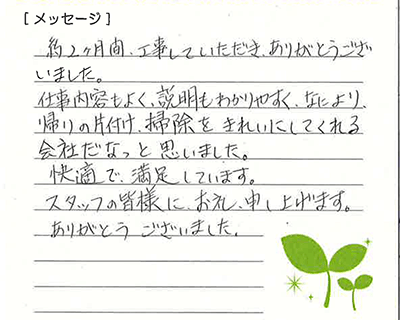 [メッセージ]
約2ヶ月間、工事していただき、ありがとうござ
いました。
仕事内容もよく、説明もわかりやすく、なにより、
帰りの片付け、掃除をきれいにしてくれる
会社だなっと思いました。
快適で、満足しています。
スタッフの皆様に、お礼、申し上げます。
ありがとうございました。